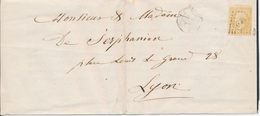 Monsieur & Madame
De Serphanion
place Louis le Grand 28
Lyon